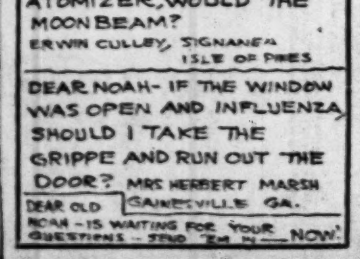 ATOMIZER, WOULD THE
MOONBEAM?
ERWIN CULLEY, SIGNANEA
ISLE OF PINES
DEAR NOAH- IF THE WINDOW
WAS OPEN AND INFLUENZA,
SHOULD I TAKE THE
GRIPPE AND RUN OUT THE
DOOR? MRS HERBERT MARSH
GAINESVILLE GA.
DEAR OLD
NOAH - IS WAITING FOR YOUR
QUESTIONS - SEND 'EM IN - NOW!